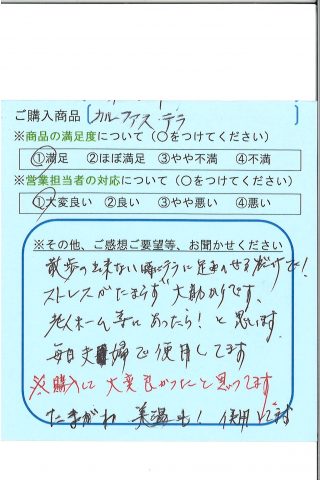 ご購入商品 カルーファス テラ
※商品の満足度について（○をつけてください）
①満足 ②ほぼ満足 ③やや不満 ④不満
※営業担当者の対応について（○をつけてください）
①大変良い ②良い ③やや悪い ④悪い
※その他、ご感想ご要望等、お聞かせください
散歩の出来ない時にテラに足をのせるだけで!
ストレスがたまらず 大助かりです、
老人ホーム等にあったら! と思います。
毎日夫婦で使用してます
※購入して大変良かったと思ってます
たまがわ 美温も! 使用してます